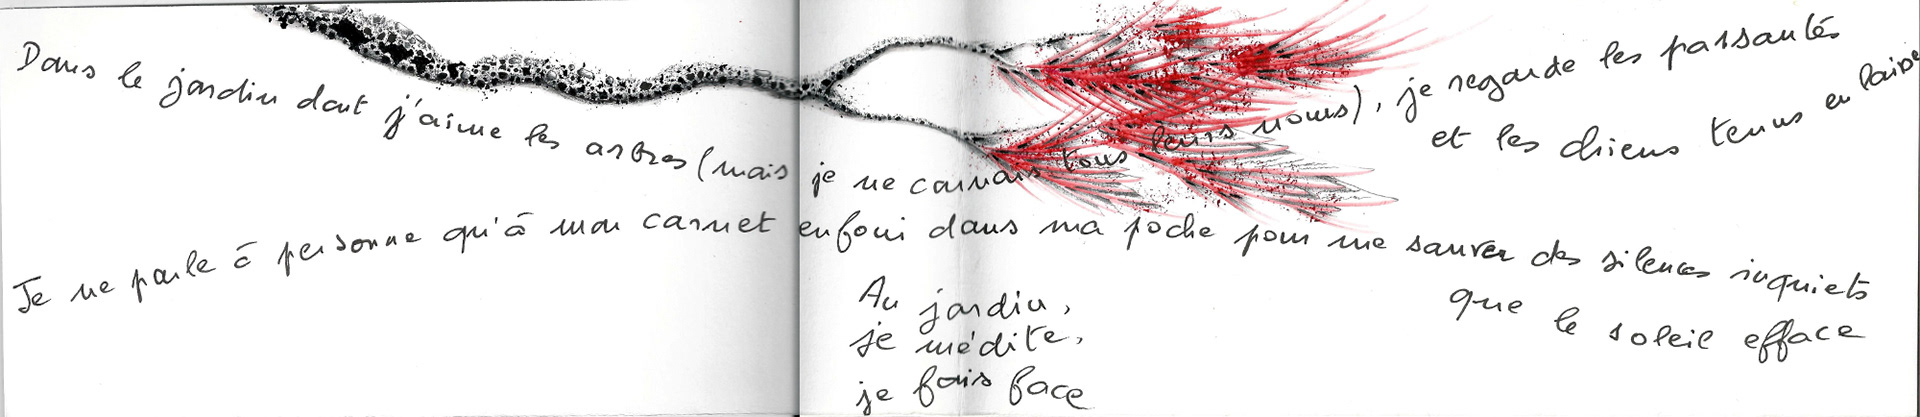 Dans le jardin dont j'aime les arbres (mais je ne connais tous leurs noms), je regarde les passantés
et les chiens tenus en laisse
Je ne parle à personne qu'à mon carnet enfoui dans ma poche pour me sauver des silences inquiets
que le soleil efface
Au jardin,
je médite,
je fais face